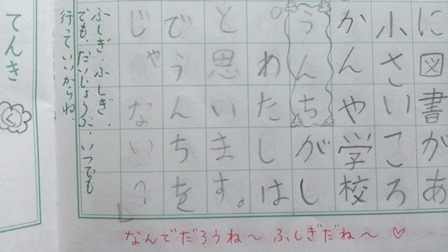 に図書があ
小さいころ
かんや学校
うんちがし
。わたしは
と思います。
でうんちをす
じゃないい
ふしぎ、ふしぎ。
でも、だいじょうぶ。いつでも
行っていいからね
てんき
く
なんでだろうね〜 ふしぎだね〜 ♡